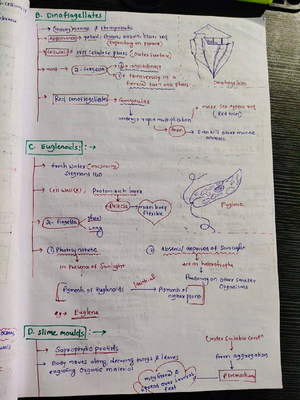 B. Dinoflagellates
→ Mostly marine & photosynthetic
→ Appearance → yellow, Green, brown, blue, red
(depending on pigment)
→ cell wall → stiff cellulose plates (outer surface)
→ 2-flagella → ① longitudinally
→ ① transversely in a furrow b/w wall plates
Dinoflagellates
→ Red Dinoflagellates → Gonyaulax
undergo rapid multiplication
make sea appear red
(Red tides)
Toxin → & kill other marine animals
C. Euglenoids: →
→ fresh water (majority)
stagnant H₂O
→ Cell wall (✗) Protein rich layer
Pellicle → make body flexible
→ 2-flagella → short
Long
Euglena
→ ① Photosynthetic
② Absence/deprived of Sunlight
in presence of Sunlight
act as heterotrophs
Predating on other smaller organisms
Pigments of Euglenoids → identical → Pigments of higher plants
eg → Euglena
D. Slime moulds: →
→ Saprophytic protists
→ Body moves along decaying twigs & leaves
engulfing organic material
Under suitable cond^n
form aggregation
Plasmodium
may grow & spread over several feet